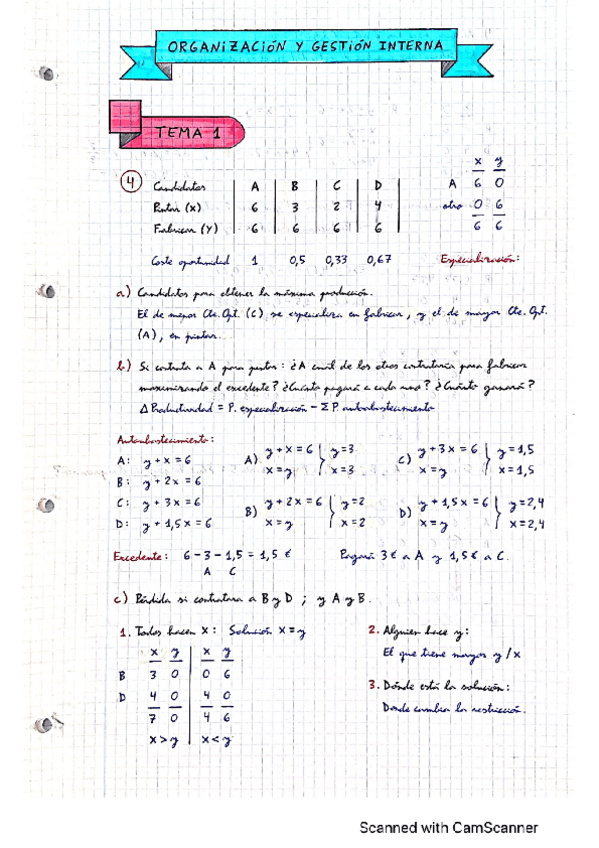 ORGANIZACIÓN Y GESTIÓN INTERNA
TEMA 1
4
Candidatos A B C D
Pintar (X) 6 3 2 4
Fabricar (Y) 6 6 6 6
Coste oportunidad 1 0,5 0,33 0,67
x y
A 6 0
otro 0 6
6 6
Especialización:
a) Candidatos para obtener la máxima producción.
El de menor Cte. Opt. (C) se especializa en fabricar, y el de mayor Cte. Opt.
(A), en pintar.
b) Si contrata a A para pintar: ¿A cuál de los otros contrataría para fabricar
maximizando el excedente? ¿Cuánto pagará a cada uno? ¿Cuánto ganará?
Δ Productividad = P. especialización - Σ P. autoabastecimiento
Autoabastecimiento:
A: y + x = 6
B: y + 2x = 6
C: y + 3x = 6
D: y + 1,5x = 6
A) y + x = 6 } y = 3
x = y } x = 3
B) y + 2x = 6 } y = 2
x = y } x = 2
C) y + 3x = 6 } y = 1,5
x = y } x = 1,5
D) y + 1,5x = 6 } y = 2,4
x = y } x = 2,4
Excedente: 6 - 3 - 1,5 = 1,5 €
A C
Pagará 3€ a A y 1,5€ a C.
c) Pérdida si contratara a B y D ; y A y B.
1. Todos hacen X: Solución X = y
x y x y
B 3 0 0 6
D 4 0 4 0
7 0 4 6
x > y x < y
2. Alguien hace y:
El que tiene mayor y/x
3. Dónde está la solución:
Donde cambia la restricción.
Scanned with CamScanner